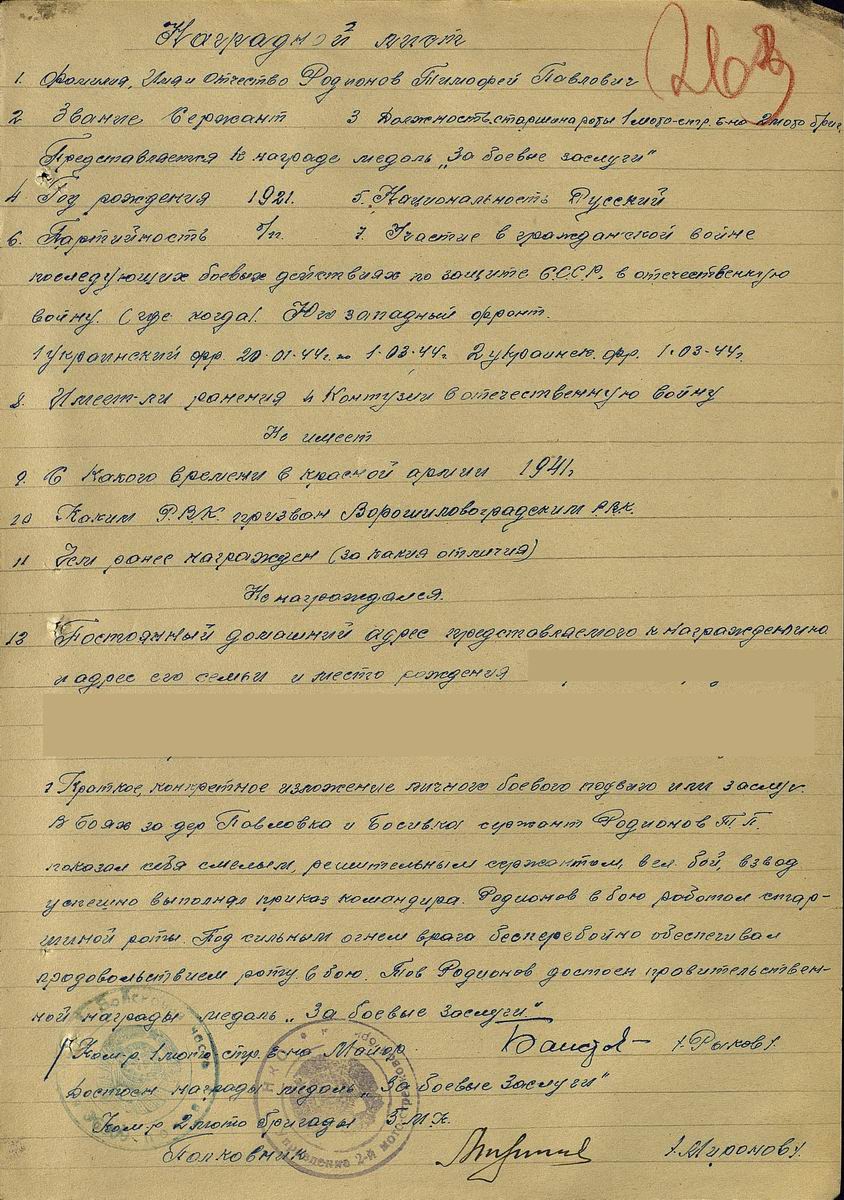 Наградной лист
263
1. Фамилия, Имя и Отчество Родионов Тимофей Павлович
2 Звание Сержант 3 Должность старшина роты 1 мото-стр. б-на 2 мото бриг.
Представляется к награде медаль „За боевые заслуги"
4 Год рождения 1921. 5. Национальность Русский
6. Партийность б/п. 7. Участие в гражданской войне
последующих боевых действиях по защите С.С.С.Р. в отечественную
войну. (где когда). Юго западный фронт.
1 украинский фр. 20-01-44г. по 1-03-44г. 2 украинск. фр. 1-03-44г.
8. Имеет-ли ранения и контузии в отечественную войну
Не имеет
9. С Какого времени в красной армии 1941г
10 Каким Р.В.К. призван Ворошиловоградским Р.В.К.
11 Чем ранее награжден (за какия отличия)
Не награждался.
12 Постоянный домашний адрес представляемого к награждению
и адрес его семьи и место рождения
1 Краткое, конкретное изложение личного боевого подвига или заслуг.
В боях за дер Павловка и Босивка сержант Родионов Т.П.
показал себя смелым, решительным сержантом, вел бой, взвод
успешно выполнял приказ командира. Родионов в бою работал стар-
шиной роты. Под сильным огнем врага бесперебойно обеспечивал
продовольствием роту в бою. Тов Родионов достоен правительствен-
ной награды медаль „За боевые заслуги"
Ком-р. 1 мото-стр. б-на Майор /Рыков/.
Достоен награды медаль „За боевые заслуги"
Ком-р 2 мото бригады З.М.К.
Полковник /Миронов/.